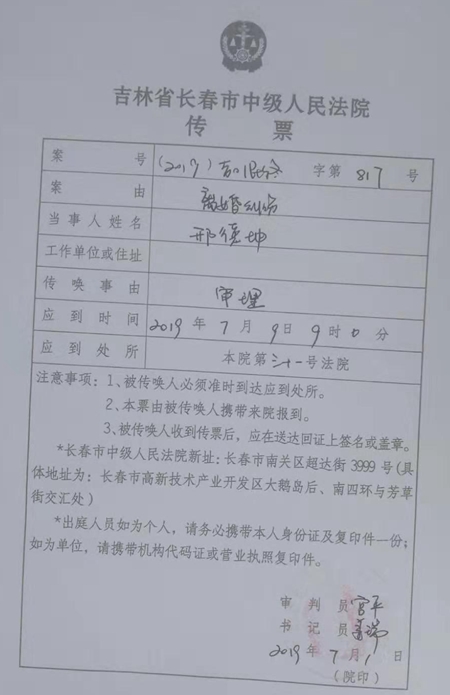 吉林省长春市中级人民法院
传 票
案 号 (2017) 字第 817 号
案 由 离婚纠纷
当事人姓名 邢德坤
工作单位或住址
传 唤 事 由 审理
应 到 时 间 2019 年 7 月 9 日 9 时 0 分
应 到 处 所 本院第三十一号法院
注意事项：1、被传唤人必须准时到达应到处所。
2、本票由被传唤人携带来院报到。
3、被传唤人收到传票后，应在送达回证上签名或盖章。
*长春市中级人民法院新址：长春市南关区超达街 3999 号(具
体地址为：长春市高新技术产业开发区大鹅岛后、南四环与芳草
街交汇处)
*出庭人员如为个人，请务必携带本人身份证及复印件一份；
如为单位，请携带机构代码证或营业执照复印件。
审 判 员 宫平
书 记 员
2019 年 7 月 1 日
(院印)